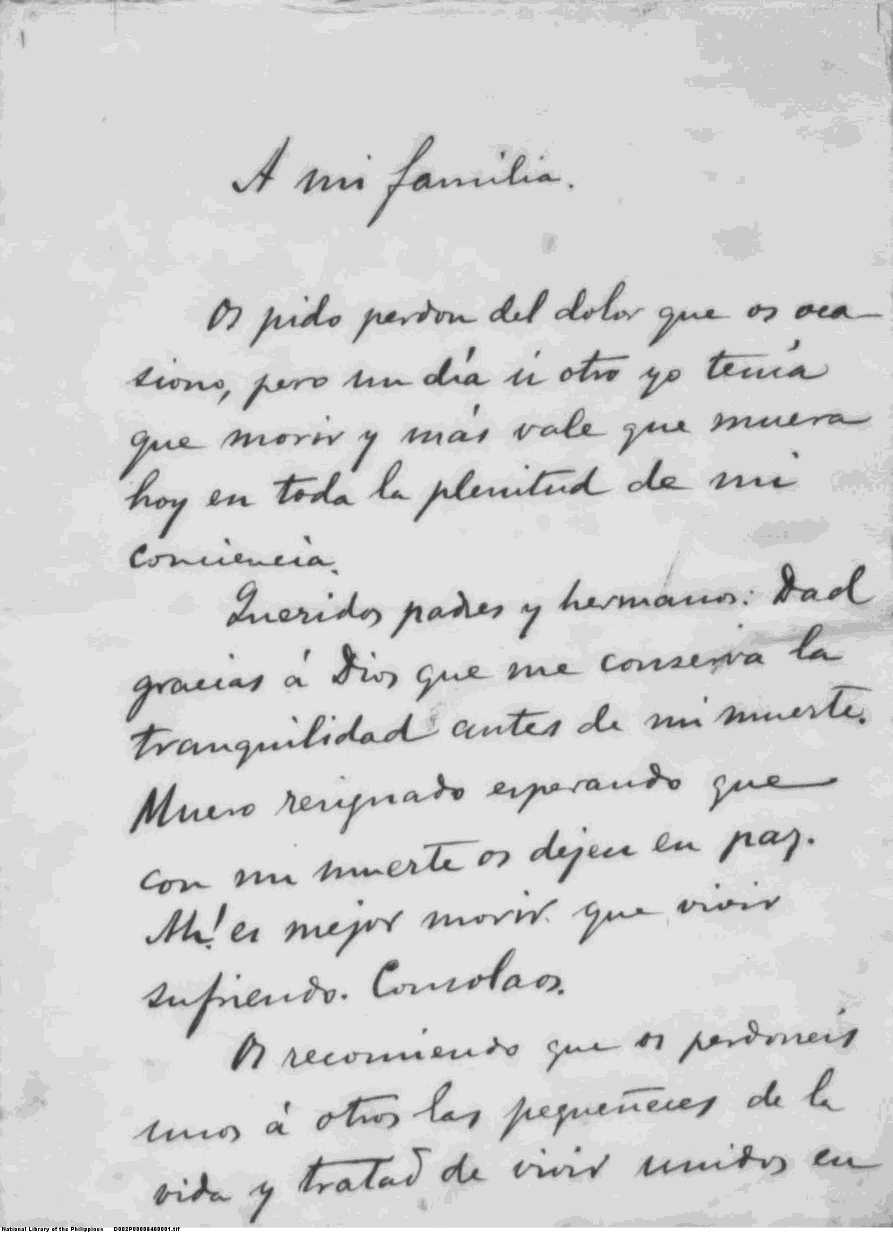 A mi familia.
Os pido perdon del dolor que os oca
siono, pero un día ú otro yo tenía
que morir y más vale que muera
hoy en toda la plenitud de mi
conciencia.
Queridos padres y hermanos: Dad
gracias á Dios que me conserva la
tranquilidad antes de mi muerte.
Muero resignado esperando que
con mi muerte os dejen en paz.
Ah! es mejor morir que vivir
sufriendo. Consolaos.
Os recomiendo que os perdoneis
unos á otros las pequeñeces de la
vida y tratad de vivir unidos en
National Library of the Philippines